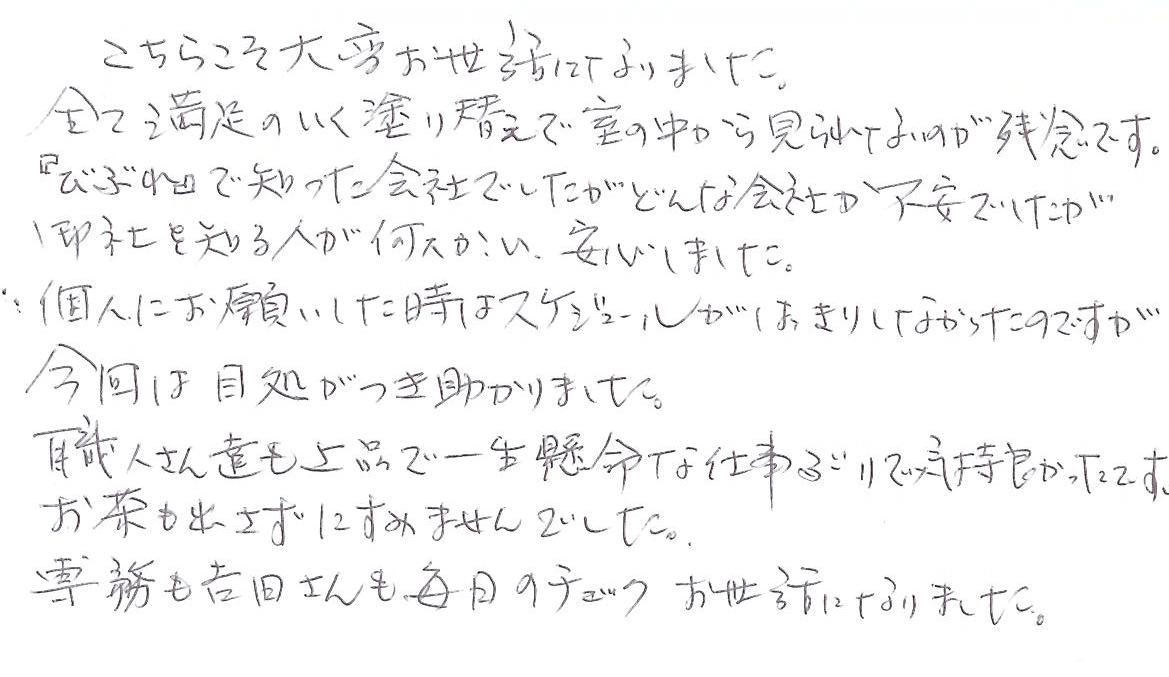 こちらこそ大変お世話になりました。
全て満足のいく塗り替えで室の中から見られないのが残念です。
『びぶれ』で知った会社でしたがどんな会社か不安でしたが
御社を知る人が何人かい、安心しました。
個人にお願いした時はスケジュールがはっきりしなかったのですが
今回は目処がつき助かりました。
職人さん達も上品で一生懸命な仕事ぶりで気持良かったです。
お茶も出さずにすみませんでした。
専務も吉田さんも毎日のチェックお世話になりました。